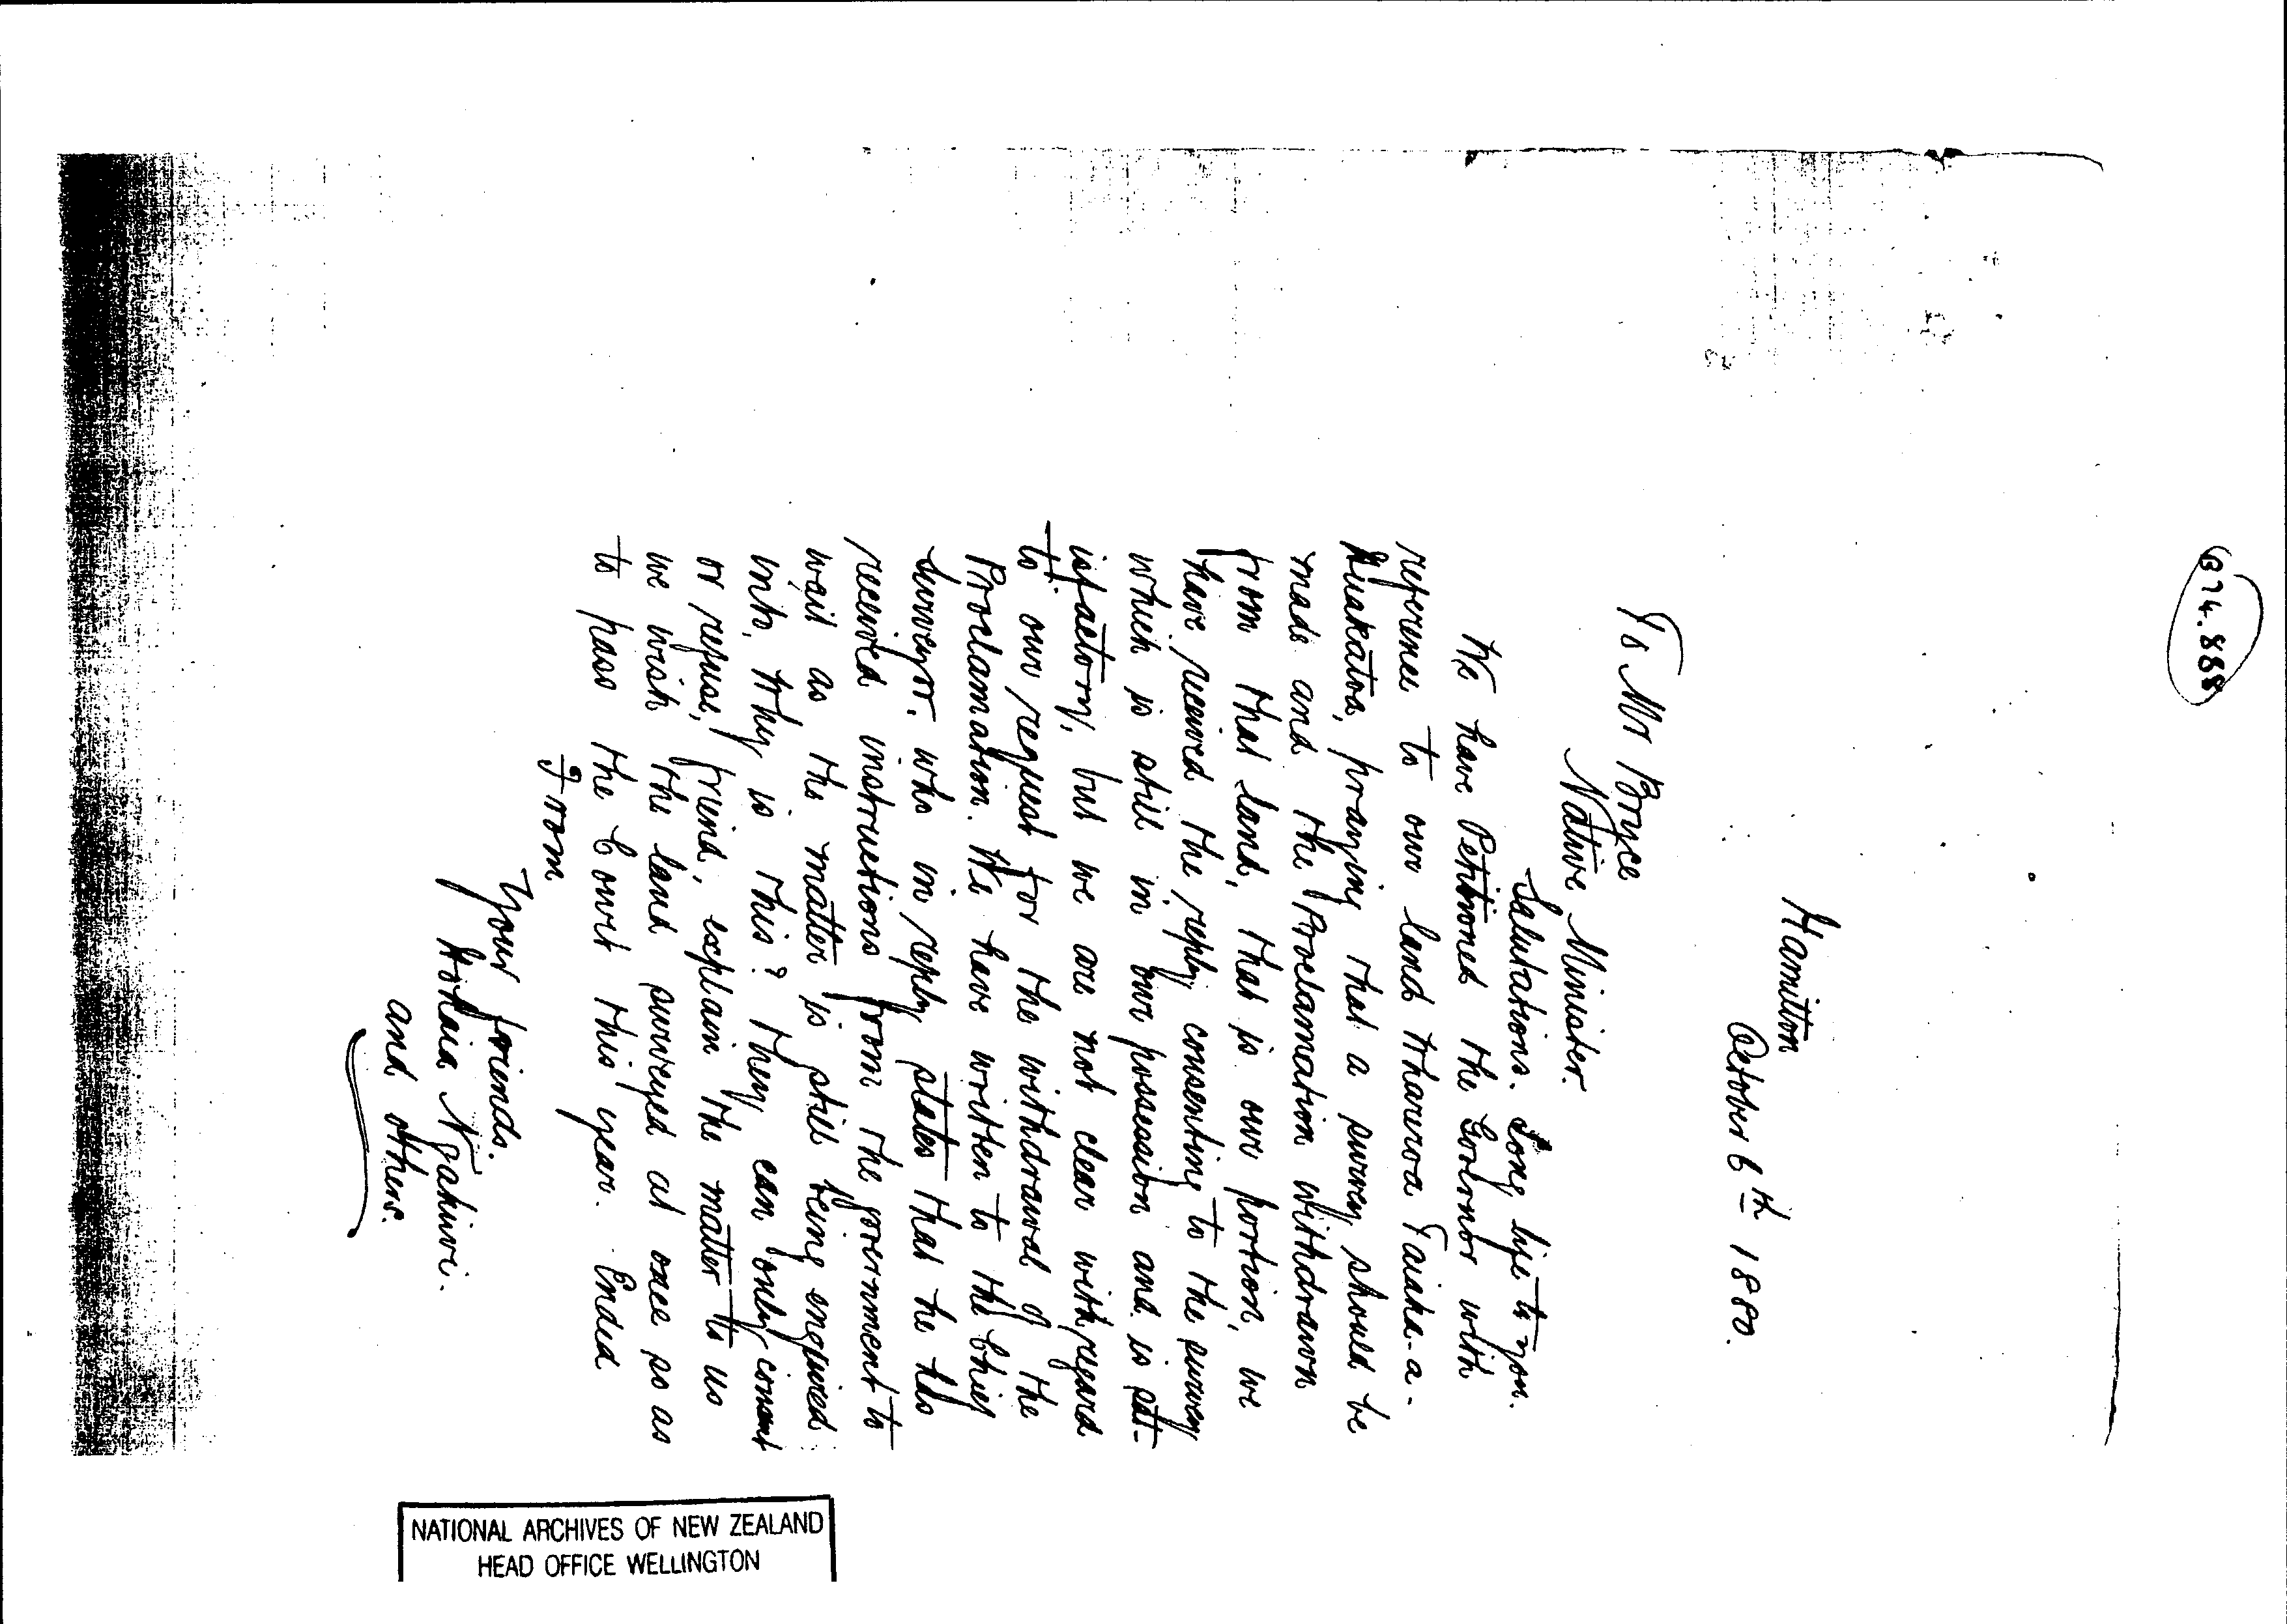 374.888
Hamilton
October 6th 1880.
To Mr Bryce
Native Minister.
Salutations. Long life to you.
We have Petitioned the Governor with
reference to our land Wharuroa Taiaha-a-
Ruakatoa, praying that a survey should be
made and the Proclamation withdrawn
from that land, that is our portion, we
have received the reply consenting to the survey
which is still in our possession and is sat-
isfactory, but we are not clear with regard
to our request for the withdrawal of the
Proclamation. We have written to the Chief
Surveyor, who in reply states that he has
received instructions from the Government to
wait as the matter is still being enquired
into, Why is this? They can only consent
or refuse, friend, explain the matter to us
we wish the land surveyed at once so as
to pass the Court this year. Ended
From
Your friends.
Ngahiwi.
and others.
NATIONAL ARCHIVES OF NEW ZEALAND
HEAD OFFICE WELLINGTON